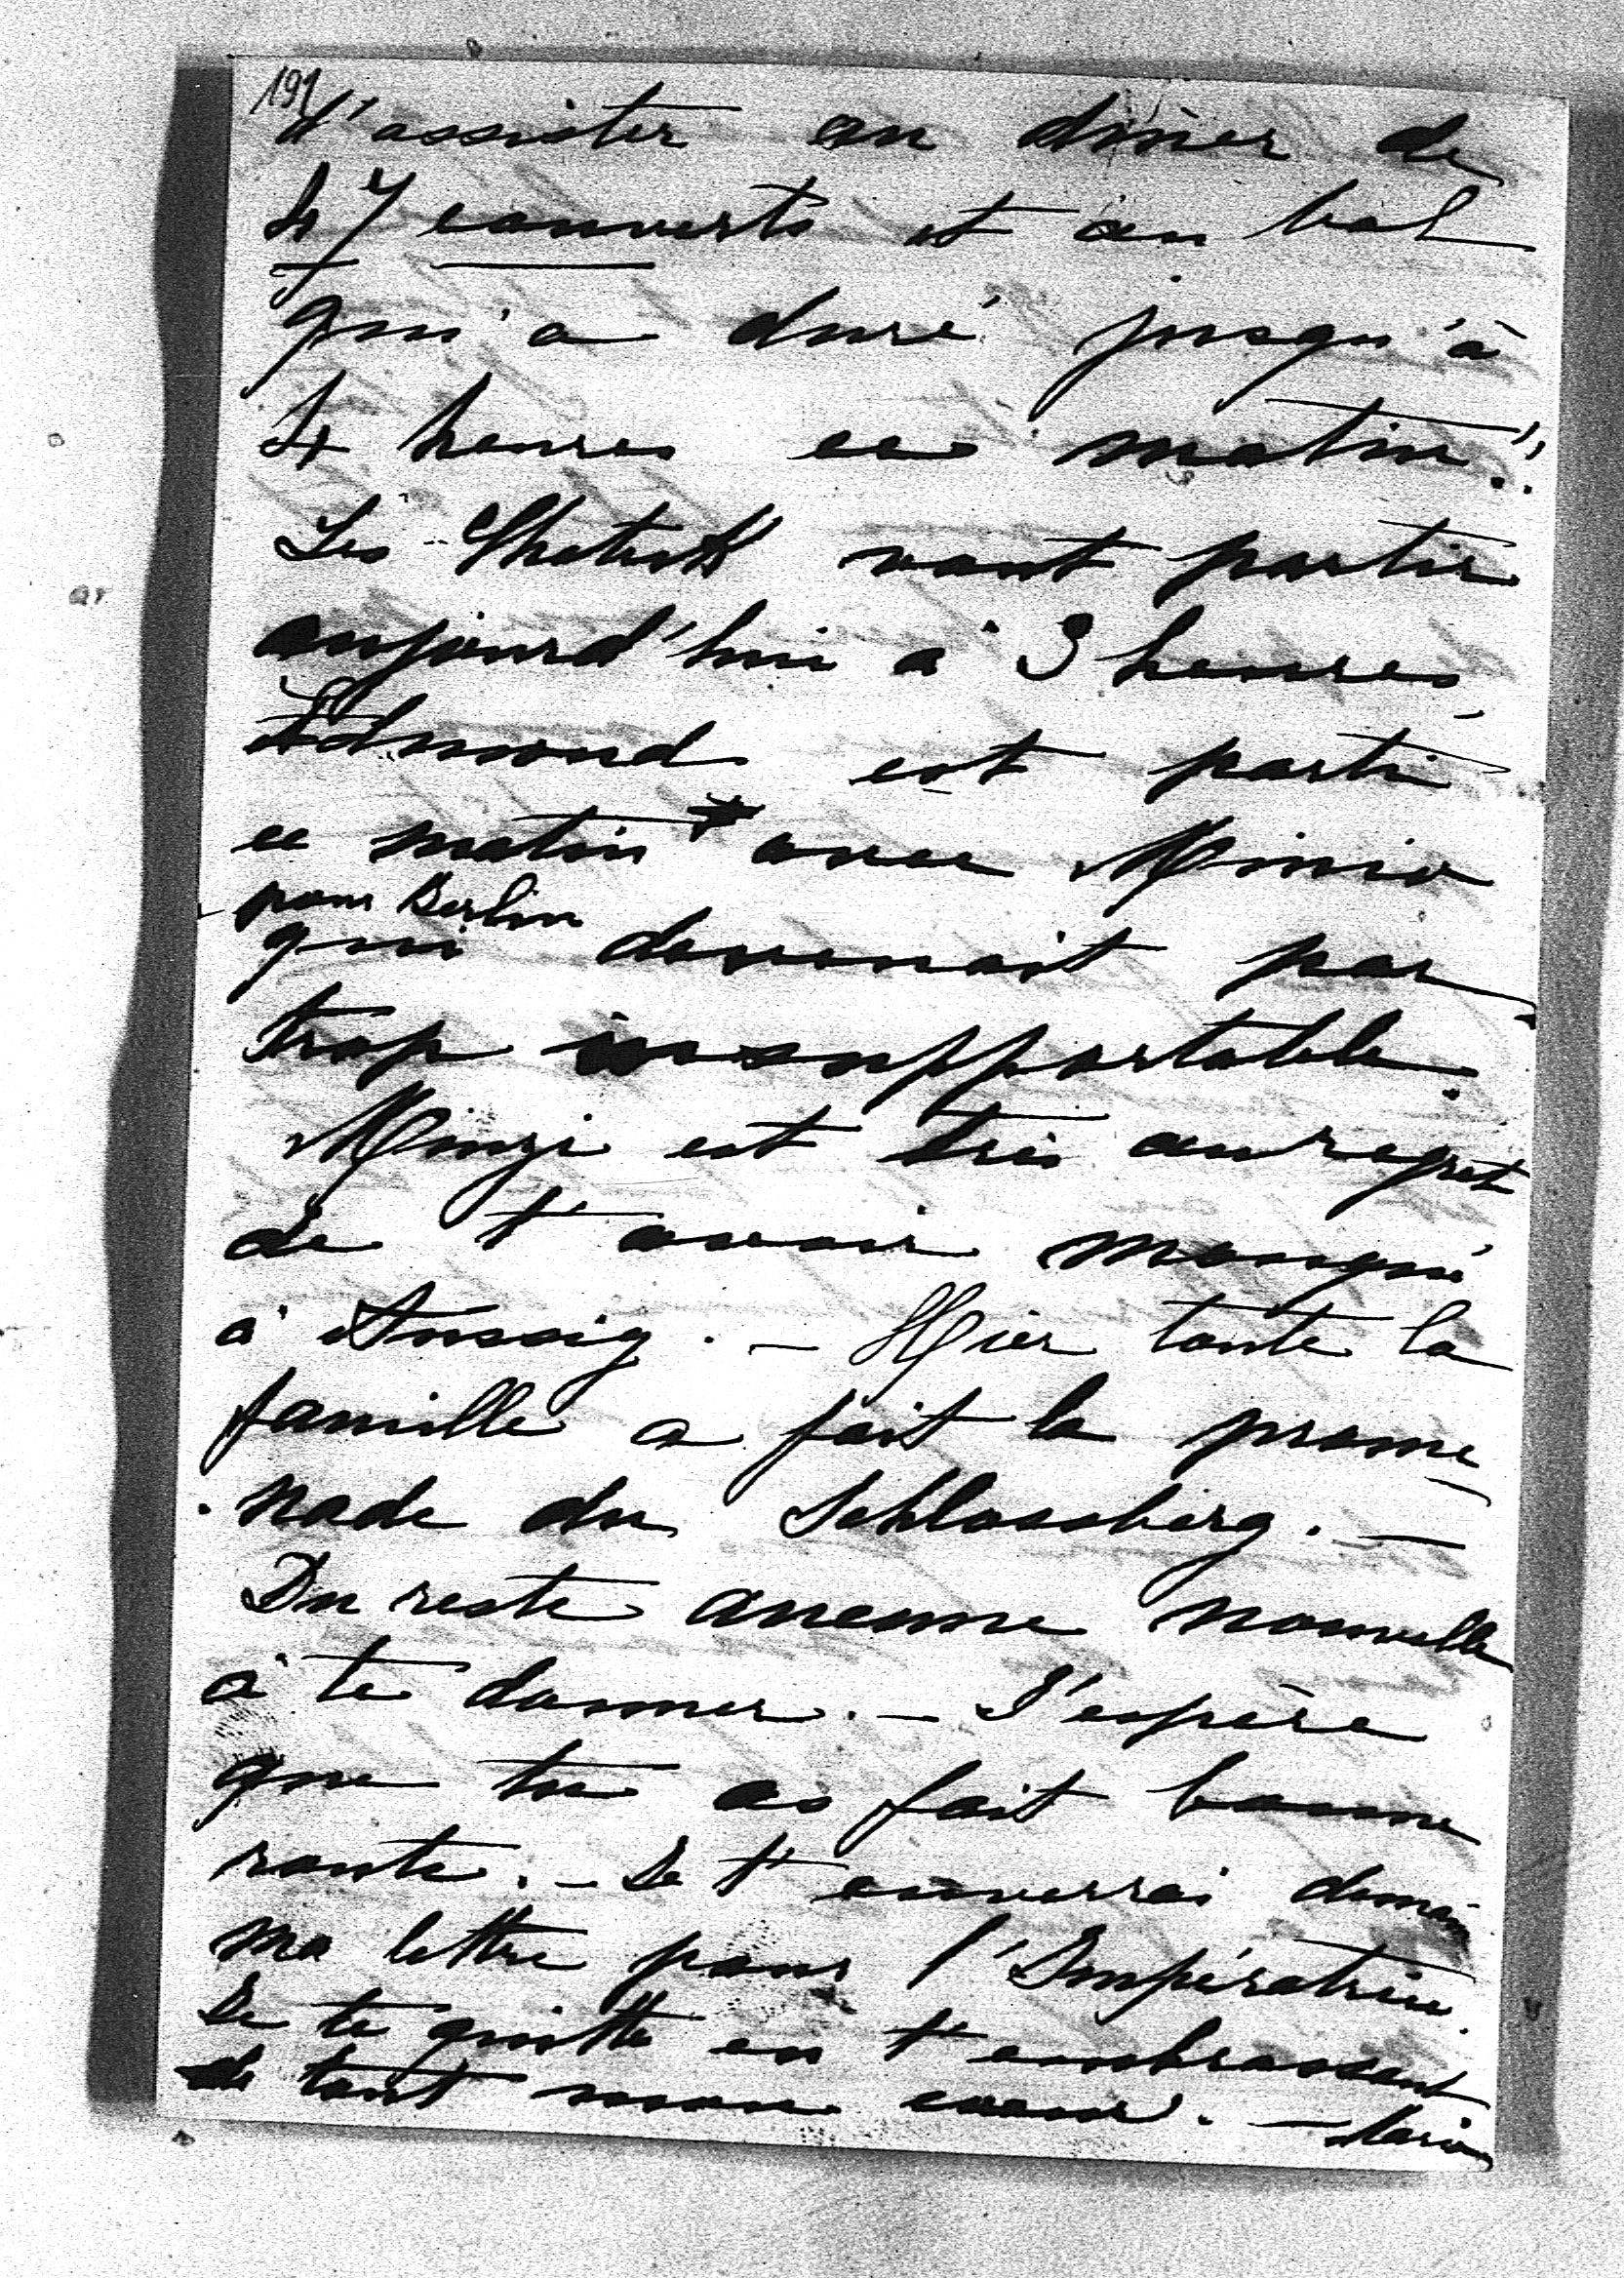 191
d'assister au dîner de
47 couverts et au bal
qui a duré jusqu'à
4 heures ce matin!!
Les vont partir
aujourd'hui à 3 heures
Edmond est parti
ce matin avec
pour Berlin
qui devenait par
trop insupportable.
est très au regret
de t'avoir manqué
à Aussig. — Hier toute la
famille a fait la prome
nade du Schlossberg. —
Du reste aucune nouvelle
à te donner. — J'espère
que tu as fait bonne
route. — Je t'enverrai demain
ma lettre pour l'Impératrice.
Je te quitte en t'embrassant
de tout mon coeur. —